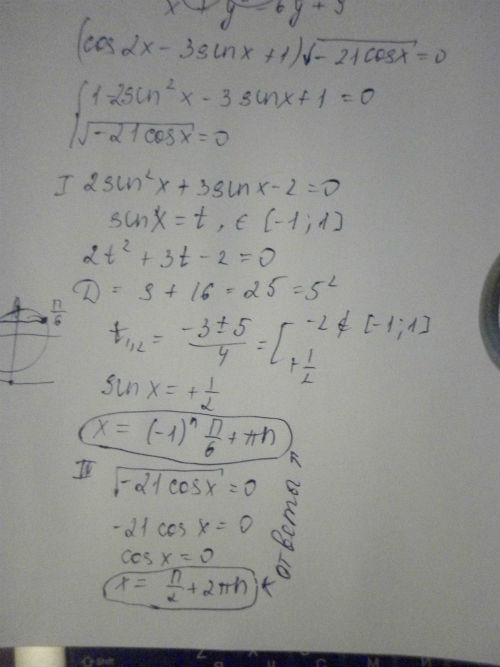 x + y = 6y + 9
(cos2x - 3sinx + 1)√-21cosx = 0
{1-2sin²x - 3sinx + 1 = 0
√-21cosx = 0
I 2sin²x + 3sinx - 2 = 0
sinx = t, ∈ [-1; 1]
2t² + 3t - 2 = 0
D = 9 + 16 = 25 = 5²
t₁,₂ = (-3 ± 5)/4 = [-2 ∉ [-1; 1]
+1/2
π/6
sinx = +1/2
x = (-1)ⁿ π/6 + πn
II √-21cosx = 0
-21cosx = 0
cosx = 0
x = π/2 + 2πn
ответы